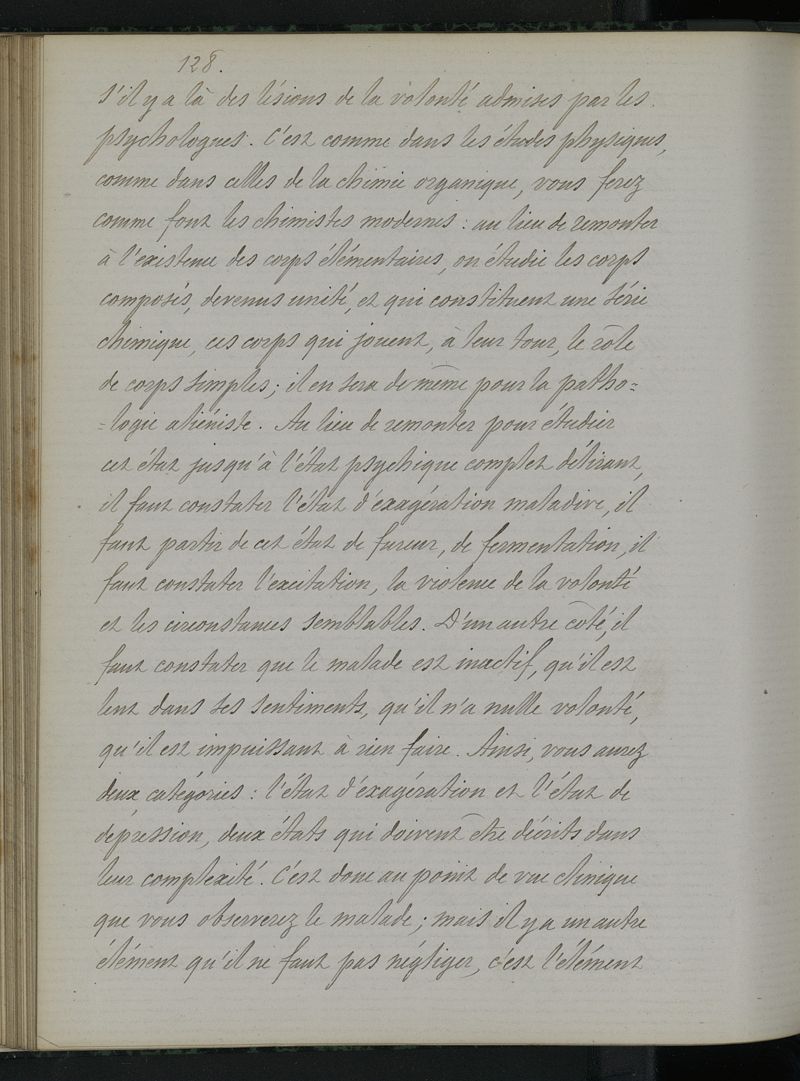 128.
s'il y a là des lésions de la volonté admises par les
psychologues. C'est comme dans les études physiques,
comme dans celles de la chimie organique, vous ferez
comme font les chimistes modernes : au lieu de remonter
à l'existence des corps élémentaires, on étudie les corps
composés, devenus unité, et qui constituent une série
chimique, ces corps qui jouent, à leur tour, le rôle
de corps simples ; il en sera de même pour la patho=
=logie aliéniste. Au lieu de remonter pour étudier
cet état jusqu'à l'état psychique complet délirant,
il faut constater l'état d'exagération maladive, il
faut partir de cet état de fureur, de fermentation, il
faut constater l'excitation, la violence de la volonté
et les circonstances semblables. D'un autre côté, il
faut constater que le malade est inactif, qu'il est
lent dans ses sentiments, qu'il n'a nulle volonté,
qu'il est impuissant à rien faire. Ainsi, vous aurez
deux catégories : l'état d'exagération et l'état de
dépression, deux états qui doivent être décrits dans
leur complexité. C'est donc au point de vue clinique
que vous observerez le malade ; mais il y a un autre
élément qu'il ne faut pas négliger, c'est l'élément